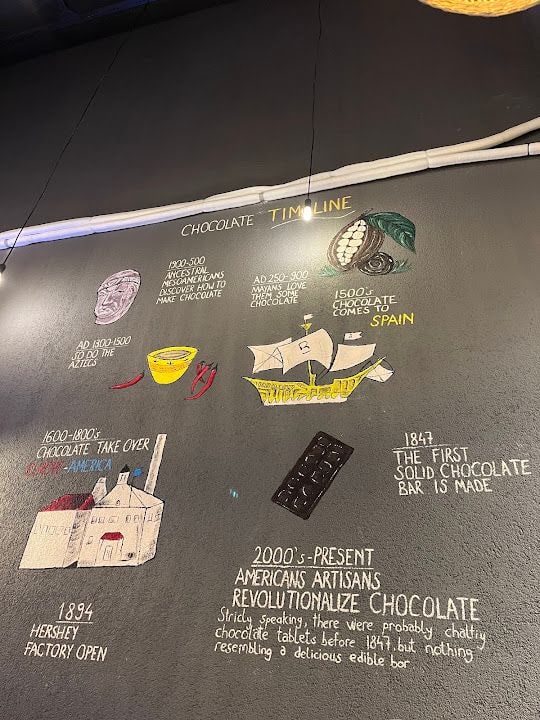 CHOCOLATE TIMELINE
1900-500
ANCESTRAL
MESOAMERICANS
DISCOVER HOW TO
MAKE CHOCOLATE
AD 250-900
MAYANS LOVE
THEM SOME
CHOCOLATE
1500's
CHOCOLATE
COMES TO
SPAIN
AD 1300-1500
SO DO THE
AZTECS
1600-1800's
CHOCOLATE TAKE OVER
EUROPE-AMERICA
1847
THE FIRST
SOLID CHOCOLATE
BAR IS MADE
1894
HERSHEY
FACTORY OPEN
2000's-PRESENT
AMERICANS ARTISANS
REVOLUTIONALIZE CHOCOLATE
Stricly speaking, there were probably chalfiy
chocolate tablets before 1847, but nothing
resembling a delicious edible bar